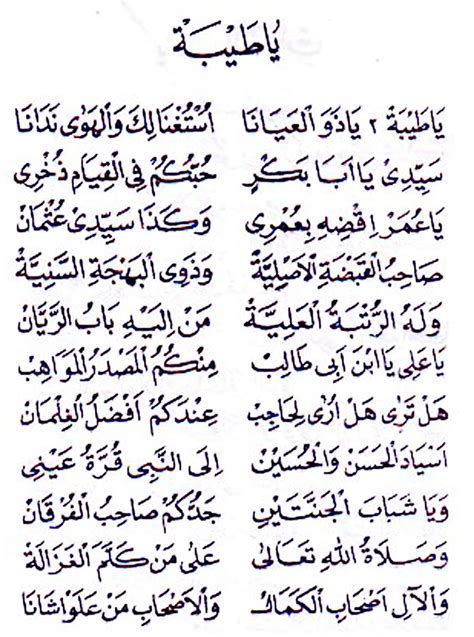 يَاطَيْبَةْ
يَاطَيْبَةْ ٢ يَاذَوَ الْعَيَانَا اُسْتُغْنَالِكَ وَالْهَوٰى نَدَانَا
سَيِّدِىْ يَا اَبَا بَكْرٍ حُبُّكُمْ فِى الْقِيَامِ ذُخْرِى
يَاعُمَرْ اِقْضِهِ بِعُمْرِى وَكَذَا سَيِّدِىْ عُثْمَانْ
صَاحِبُ الْقَبْضَةِ الْاَصْلِيَّةْ وَذَوِى الْبَهْجَةِ السَّنِيَّةْ
وَلَهُ الرُّتْبَةُ الْعَلِيَّةْ مَنْ اِلَيْهِ بَابُ الرَّيَّانْ
يَاعَلِى يَا ابْنَ اَبِى طَالِبْ مِنْكُمُ الْمَصْدَرُ الْمَوَاهِبْ
هَلْ تَرٰى هَلْ اُرٰى لِحَاجِبْ عِنْدَكُمْ اَفْضَلُ الْغِلْمَانْ
اَسْيَادَ الْحَسَنْ وَالْحُسَيْنْ اِلَى النَّبِى قُرَّةُ عَيْنِى
وَيَا شَبَابَ الْجَنَّتَيْنِ جَدُّكُمْ صَاحِبُ الْفُرْقَانْ
وَصَلَاةُ اللهِ تَعَالٰى عَلٰى مَنْ كَلَّمَ الْغَزَالَةْ
وَالْآلِ اَصْحَابِ الْكَمَالْ وَالْاَصْحَابِ مَنْ عَلَوْا شَانَا